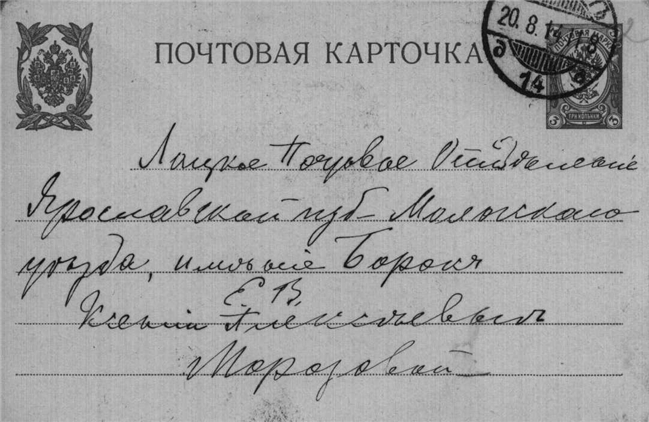 ПОЧТОВАЯ КАРТОЧКА
20.8.14
14
ТРИ КОПѢЙКИ
3 3
Лацкое Почтовое Отдѣленіе
Ярославской губ- Моложскаго
уѣзда, имѣніе Борокъ
Е. В.
Ксеніи Алексѣевнѣ
Морозовой